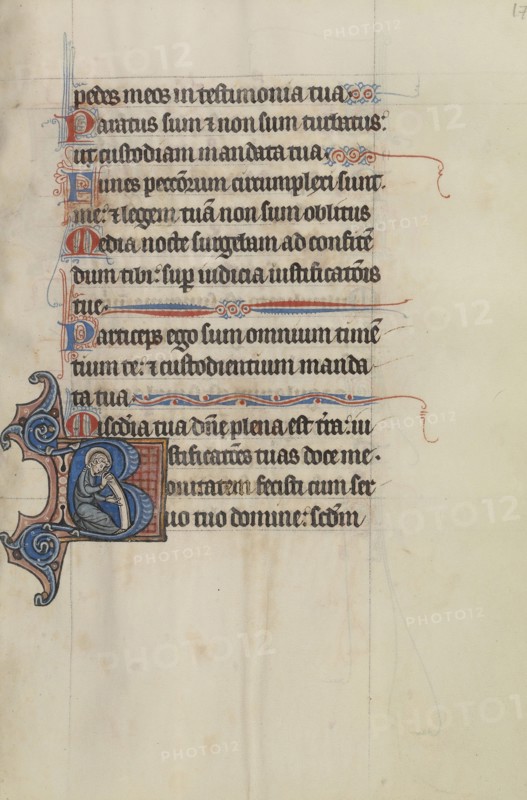 17
pedes meos in testimonia tua.
Paratus sum ⁊ non sum turbatus:
ut custodiam mandata tua.
Funes peccõrum circumplexi sunt
me: ⁊ legem tuã non sum oblitus
Media nocte surgebam ad confitẽ
dum tibi: sup̱ iudicia iustificatõis
tue.
Particeps ego sum omnium timẽ
tium te: ⁊ custodientium manda
ta tua.
Miscd̃ia tua dñe plena est tr̃a: iu
stificatões tuas doce me.
Bonitatem fecisti cum ser
uo tuo domine: scd̃m
PHOTO12
PHOTO12
PHOTO12
PHOTO12
PHOTO12
PHOTO12
PHOTO12
PHOTO12
PHOTO12
PHOTO12